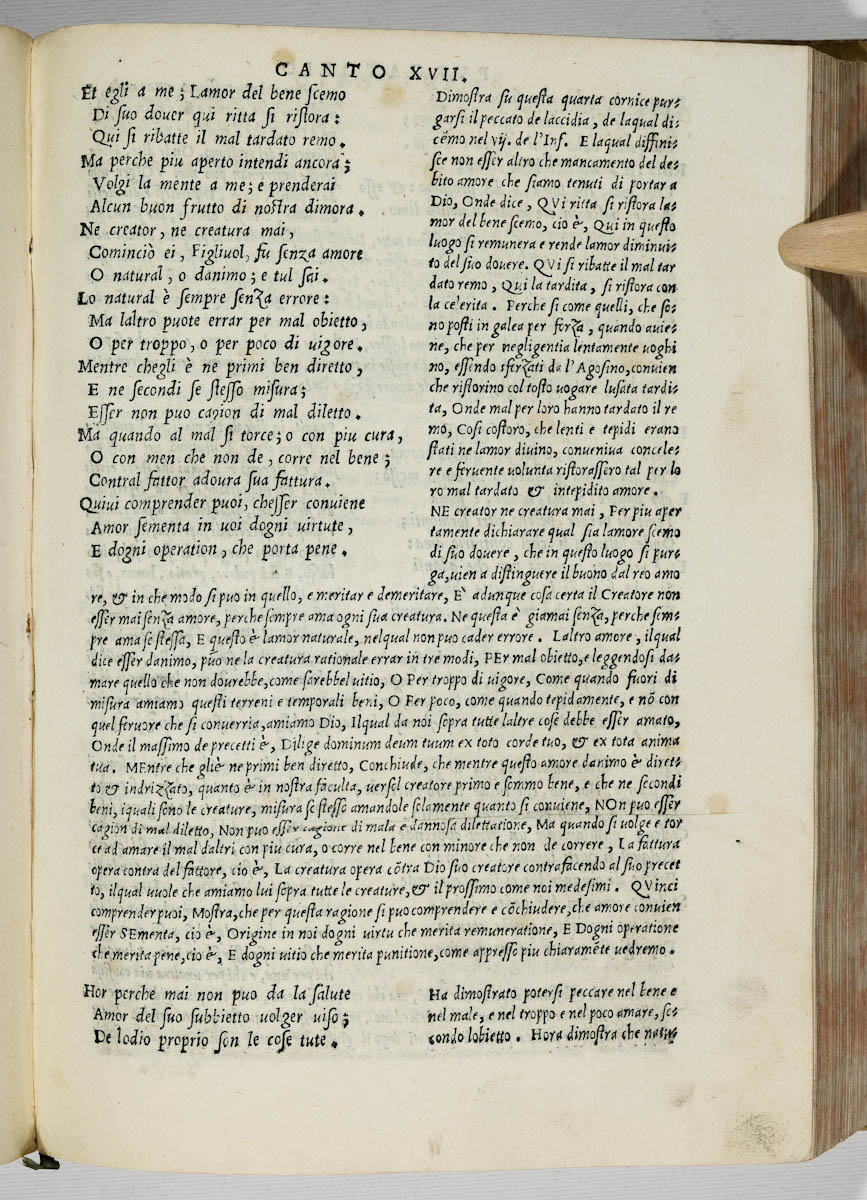 CANTO XVII.
Et egli a me; Lamor del bene scemo
Di suo douer qui ritta si ristora:
Qui si ribatte il mal tardato remo.
Ma perche piu aperto intendi ancora;
Volgi la mente a me; e prenderai
Alcun buon frutto di nostra dimora.
Ne creator, ne creatura mai,
Cominciò ei, Figliuol, fu senza amore
O natural, o danimo; e tul sai.
Lo natural è sempre senza errore:
Ma laltro puote errar per mal obietto,
O per troppo, o per poco di uigore.
Mentre chegli è ne primi ben diretto,
E ne secondi se stesso misura;
Esser non puo cagion di mal diletto.
Ma quando al mal si torce; o con piu cura,
O con men che non de, corre nel bene;
Contral fattor adoura sua fattura.
Quiui comprender puoi, chesser conuiene
Amor sementa in uoi dogni uirtute,
E dogni operation, che porta pene.
Dimostra su questa quarta cornice pur-
garsi il peccato de laccidia, de laqual di-
cẽmo nel vij. de l'Inf. E laqual diffini-
sce non esser altro che mancamento del de-
bito amore che siamo tenuti di portar a
Dio, Onde dice, QVi ritta si ristora la-
mor del bene scemo, cio è, Qui in questo
luogo si remunera e rende lamor diminui-
to del suo douere. QVi si ribatte il mal tar
dato remo, Qui la tardita, si ristora con
la celerita. Perche si come quelli, che so-
no posti in galea per forza, quando auie-
ne, che per negligentia lentamente uoghi
no, essendo sferzati da l'Agosino, conuien
che ristorino col tosto uogare lusata tardi-
ta, Onde mal per loro hanno tardato il re
mo, Cosi costoro, che lenti e tepidi erano
stati ne lamor diuino, conueniua concele-
re e feruente uolunta ristorassero tal per lo
ro mal tardato & intepidito amore.
NE creator ne creatura mai, Per piu aper
tamente dichiarare qual sia lamore scemo
di suo douere, che in questo luogo si pur-
ga, uien a distinguere il buono dal reo amo
re, & in che modo si puo in quello, e meritar e demeritare, E' adunque cosa certa il Creatore non
esser mai senza amore, perche sempre ama ogni sua creatura. Ne questa è giamai senza, perche sem-
pre ama se stessa, E questo è lamor naturale, nelqual non puo cader errore. Laltro amore, ilqual
dice esser danimo, puo ne la creatura rationale errar in tre modi, PEr mal obietto, e leggendosi da-
mare quello che non dourebbe, come sarebbel uitio, O Per troppo di uigore, Come quando fuori di
misura amiamo questi terreni e temporali beni, O Per poco, come quando tepidamente, e nõ con
quel feruore che si conuerria, amiamo Dio, Ilqual da noi sopra tutte laltre cose debbe esser amato,
Onde il massimo de precetti è, Dilige dominum deum tuum ex toto corde tuo, & ex tota anima
tua. MEntre che gliè ne primi ben diretto, Conchiude, che mentre questo amore danimo è diret-
to & indrizzato, quanto è in nostra faculta, uersol creatore primo e sommo bene, e che ne secondi
beni, iquali sono le creature, misura se stesso amandole solamente quanto si conuiene, NOn puo esser
cagion di mal diletto, Non puo esser cagione di mala e dannosa dilettatione, Ma quando si uolge e tor
ce ad amare il mal daltri con piu cura, o corre nel bene con minore che non de correre, La fattura
opera contra del fattore, cio è, La creatura opera cõtra Dio suo creatore contrafacendo al suo precet
to, ilqual uuole che amiamo lui sopra tutte le creature, & il prossimo come noi medesimi. QVinci
comprender puoi, Mostra, che per questa ragione si puo comprendere e cõchiudere, che amore conuien
esser SEmenta, cio è, Origine in noi dogni uirtu che merita remuneratione, E Dogni operatione
che merita pene, cio è, E dogni uitio che merita punitione, come appresso piu chiaramẽte uedremo.
Hor perche mai non puo da la salute
Amor del suo subbietto uolger uiso;
De lodio proprio son le cose tute.
Ha dimostrato potersi peccare nel bene e
nel male, e nel troppo e nel poco amare, se-
condo lobietto. Hora dimostra che natu-